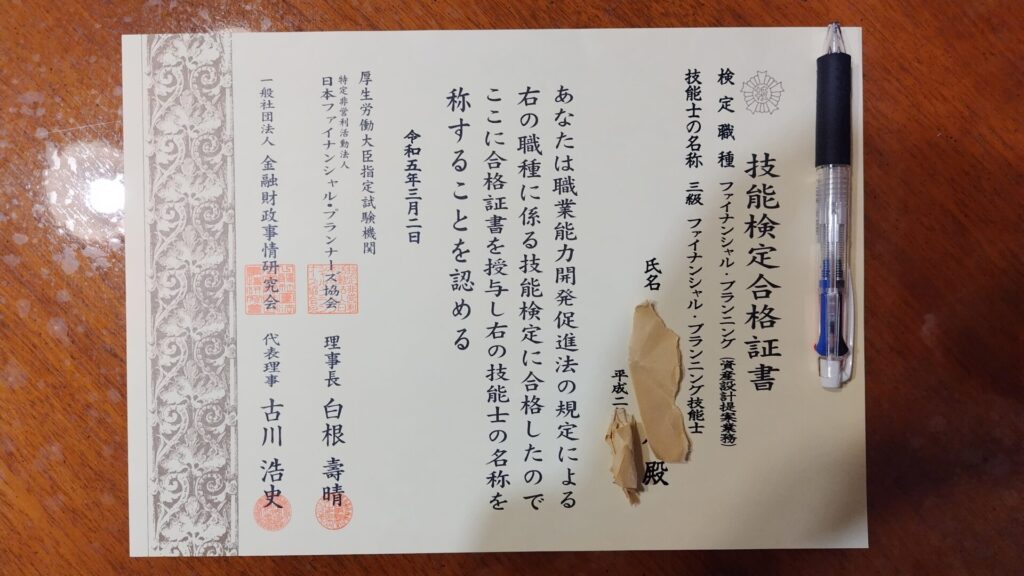 技能検定合格証書
検定職種 ファイナンシャル・プランニング(資産設計提案業務)
技能士の名称 三級 ファイナンシャル・プランニング技能士
氏名
殿
平成二
あなたは職業能力開発促進法の規定による
右の職種に係る技能検定に合格したので
ここに合格証書を授与し右の技能士の名称を
称することを認める
令和五年三月二日
厚生労働大臣指定試験機関
特定非営利活動法人
日本ファイナンシャル・プランナーズ協会 理事長 白根 壽晴
一般社団法人 金融財政事情研究会 代表理事 古川 浩史